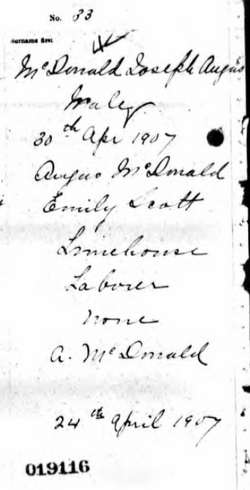 No. 33
Surname first
McDonald Joseph Angus
Male
30th Apr 1907
Angus McDonald
Emily Scott
Limehouse
Laborer
none
A. McDonald
24th April 1907
019116